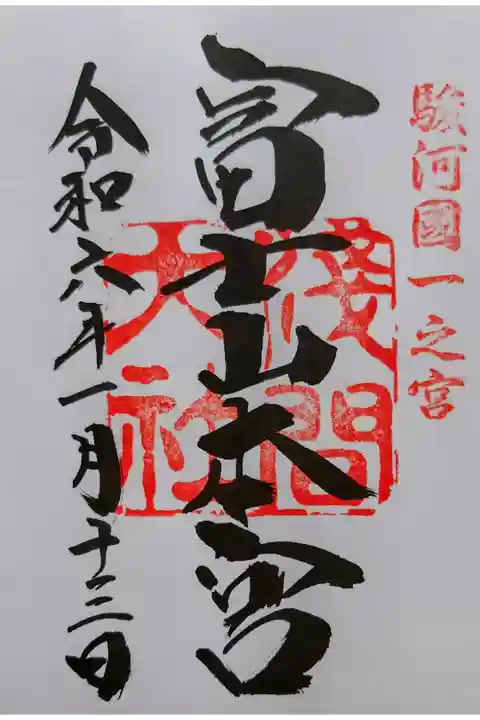 駿河國一之宮
富士山本宮
淺間
大社
令和六年一月十三日